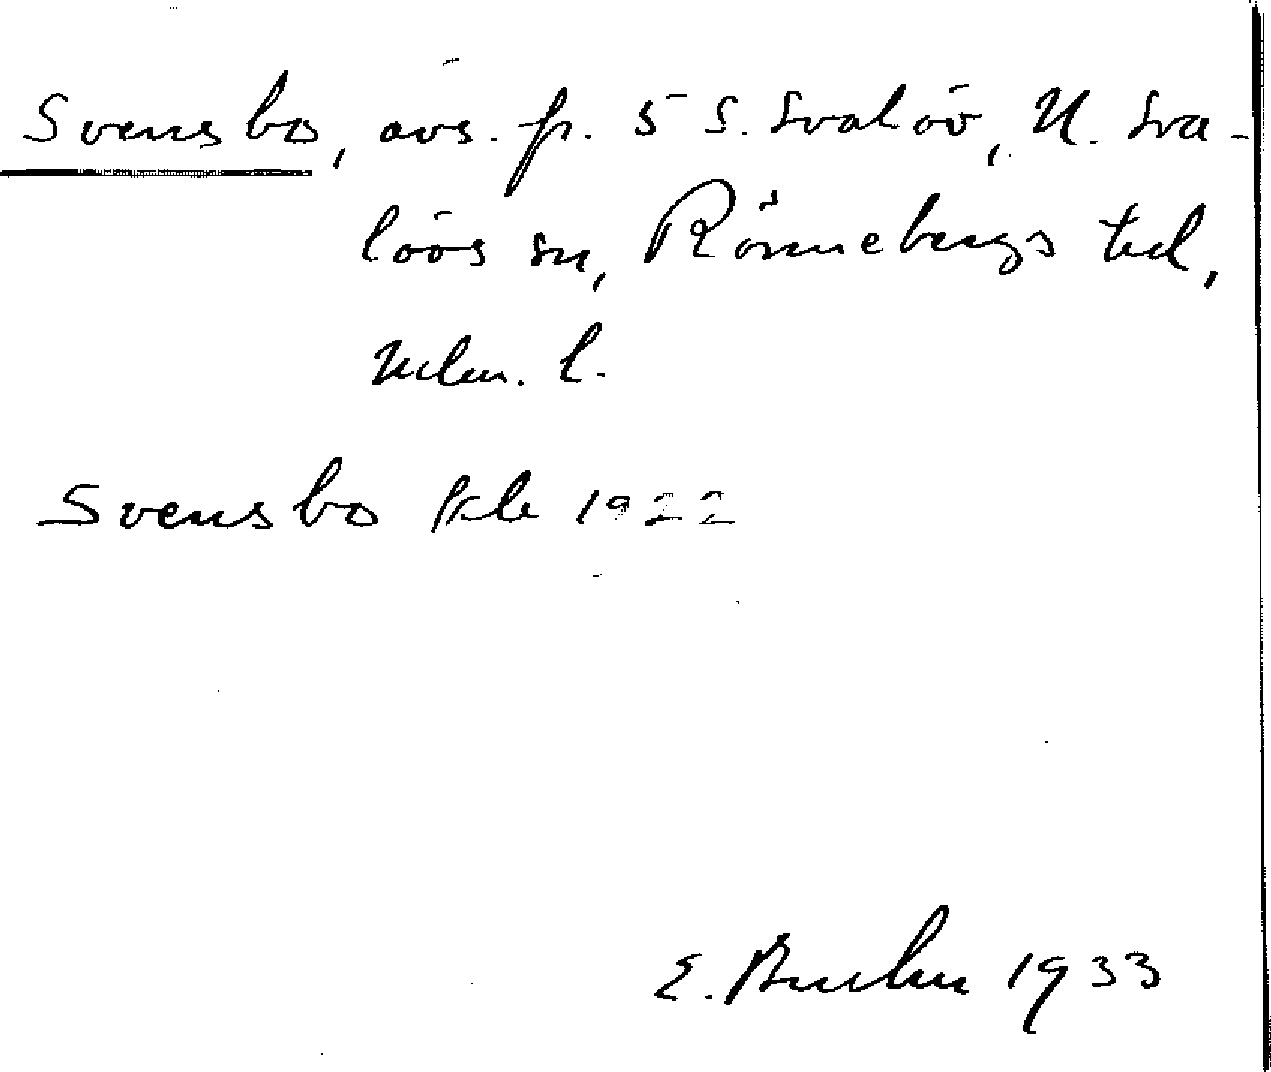 Svensbo, avs. fr. 5 S. Svalöv, N. Sva-
lövs sn, Rönnebergs hd,
Mlm. l.
Svensbo 1922
E. 1933